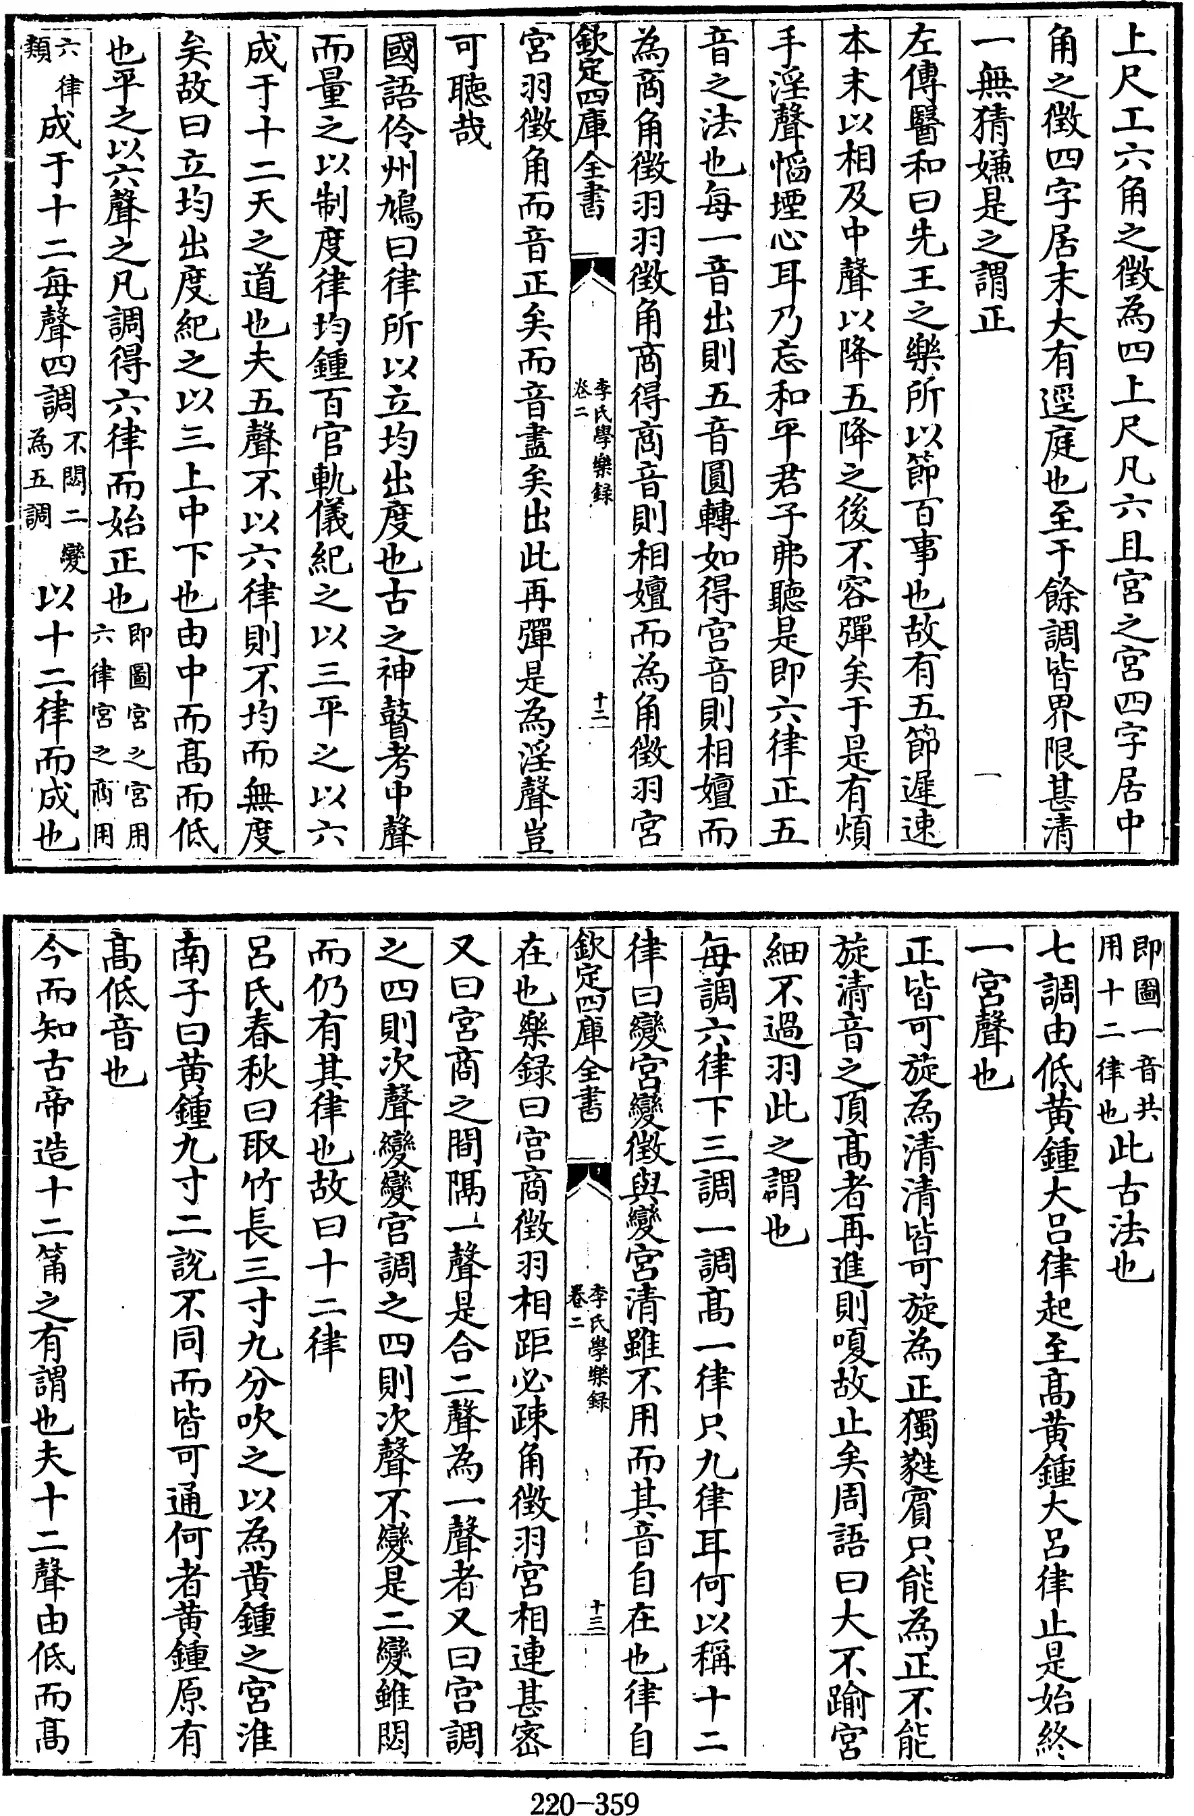 上尺工六角之徵為四上尺凡六且宮之宮四字居中
角之徵四字居末大有逕庭也至于餘調皆界限甚清
一無猜嫌是之謂正
左傳醫和曰先王之樂所以節百事也故有五節遲速
本末以相及中聲以降五降之後不容彈矣于是有煩
手淫聲慆堙心耳乃忘和平君子弗聽是即六律正五
音之法也每一音出則五音圓轉如得宮音則相嬗而
為商角徵羽羽徵角商得商音則相嬗而為角徵羽宮
欽定四庫全書
李氏學樂録
卷二
十二
宮羽徵角而音正矣而音盡矣出此再彈是為淫聲豈
可聽哉
國語伶州鳩曰律所以立均出度也古之神瞽考中聲
而量之以制度律均鍾百官軌儀紀之以三平之以六
成于十二天之道也夫五聲不以六律則不均而無度
矣故曰立均出度紀之以三上中下也由中而髙而低
也平之以六聲之凡調得六律而始正也即圖宮之宮用六律宮之商用
六律類成于十二每聲四調不閲二變為五調以十二律而成也
即圖一音共用十二律也此古法也
七調由低黄鍾大吕律起至髙黄鍾大吕律止是始終
一宮聲也
正皆可旋為清清皆可旋為正獨蕤賓只能為正不能
旋清音之頂髙者再進則嗄故止矣周語曰大不踰宮
細不過羽此之謂也
每調六律下三調一調髙一律只九律耳何以稱十二
律曰變宮變徵與變宮清雖不用而其音自在也律自
欽定四庫全書
李氏學樂録
卷二
十三
在也樂録曰宮商徵羽相距必疎角徵羽宮相連甚密
又曰宮商之間隅一聲是合二聲為一聲者又曰宮調
之四則次聲變變宮調之四則次聲不變是二變雖閲
而仍有其律也故曰十二律
呂氏春秋曰取竹長三寸九分吹之以為黄鍾之宮淮
南子曰黄鍾九寸二説不同而皆可通何者黄鍾原有
髙低音也
今而知古帝造十二筩之有謂也夫十二聲由低而髙
220-359